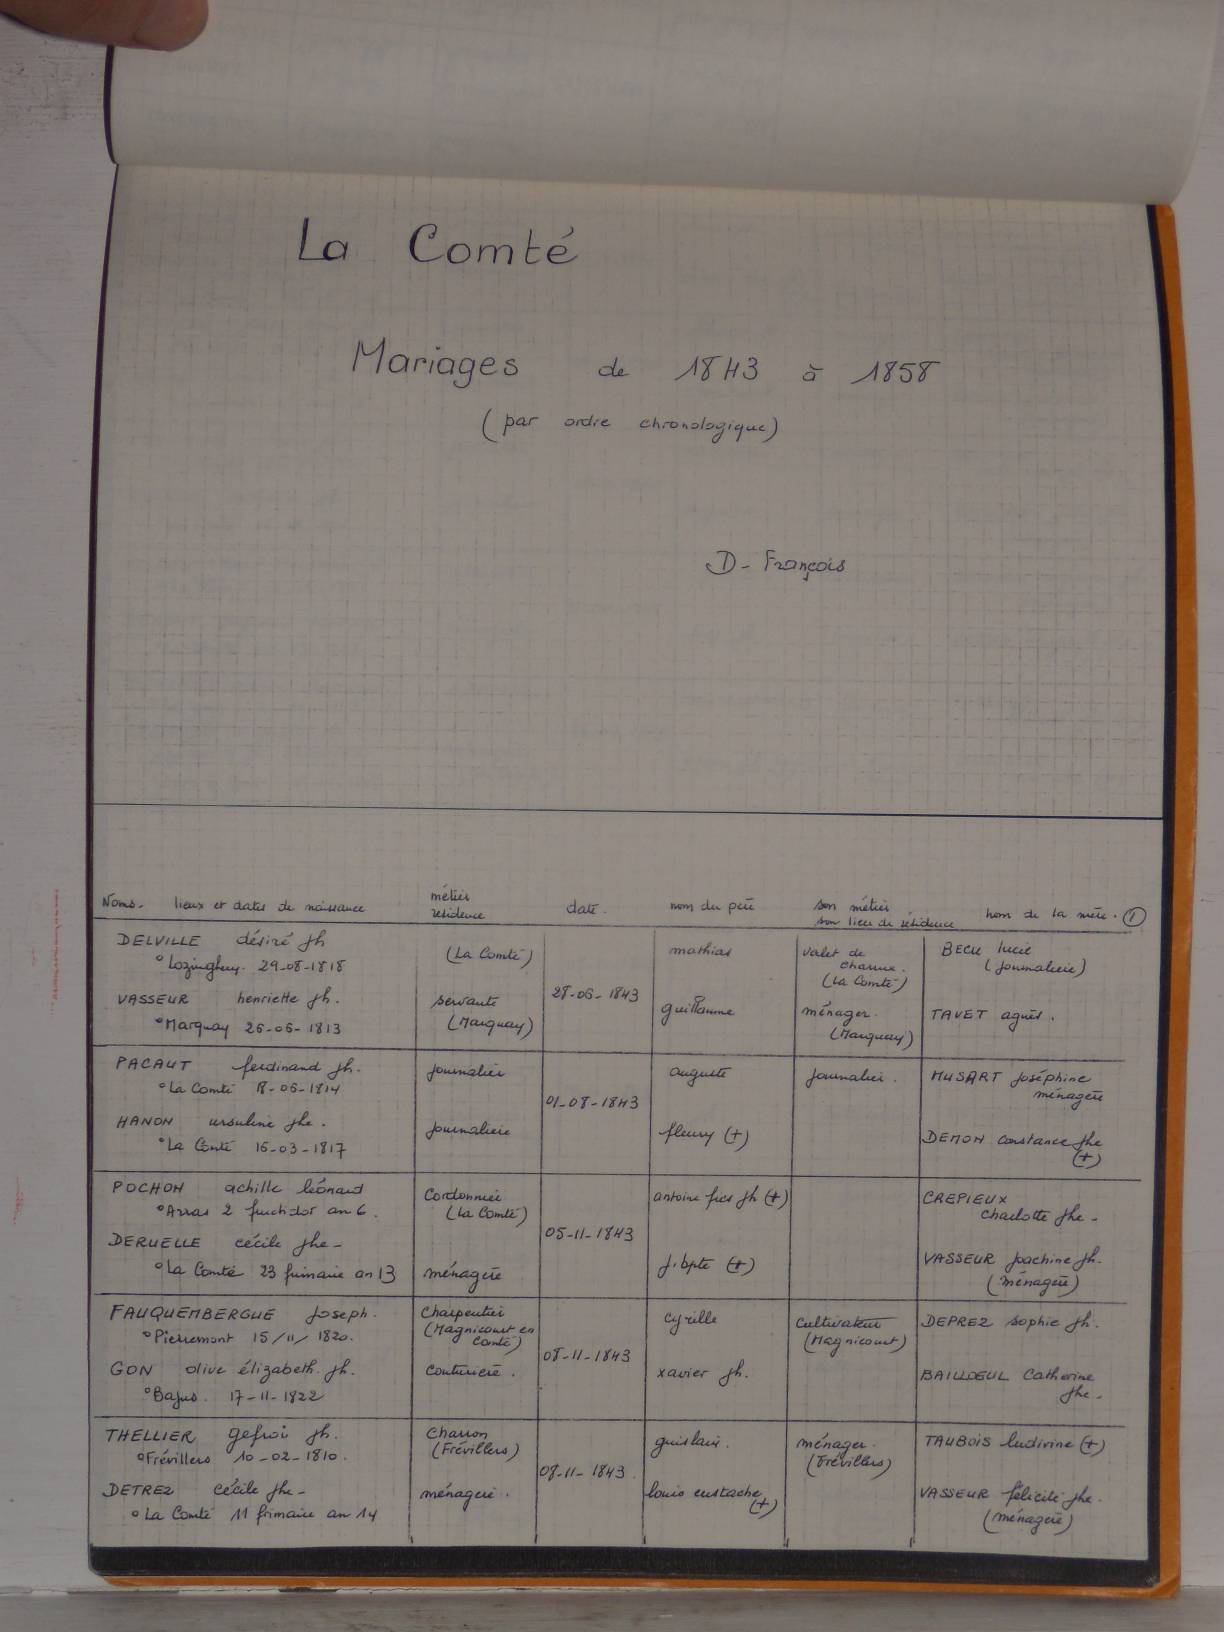 La Comté
Mariages de 1843 à 1858
(par ordre chronologique)
D- François
Noms- lieux et dates de naissance
métier
résidence
date.
nom du père
son métier
son lieu de résidence
nom de la mère. 1
DELVILLE désiré jh
° Lozinghem. 29-08-1818
(La Comté)
28-06-1843
mathias
valet de
charrue.
(La Comté)
BECU lucie
(journalière)
VASSEUR henriette jh.
° Marquay 26-06-1813
servante
(Marquay)
guillaume
ménager.
(Marquay)
TAVET agnès.
PACAUT ferdinand jh.
° La Comté 18-06-1814
journalier
01-08-1843
auguste
journalier.
MUSART joséphine
ménagère
HANON ursuline jhe.
° La Comté 15-03-1817
journalière
fleury (+)
DEMON constance jhe
(+)
POCHON achille léonard
° Arras 2 fructidor an 6.
Cordonnier
(La Comté)
05-11-1843
antoine jh (+)
CREPIEUX
charlotte jhe-
DERUELLE cécile jhe-
° La Comté 23 frimaire an 13
ménagère
j.bpte (+)
VASSEUR joachine jh.
(ménagère)
FAUQUEMBERGUE joseph.
° Pierremont 15/11/1820.
Charpentier
(Magnicourt en
comté)
08-11-1843
cyrille
Cultivateur
(Magnicourt)
DEPREZ sophie jh.
GON olive élizabeth. jh.
° Bajus. 17-11-1822
couturière.
xavier jh.
BAILLOEUL Catherine
jhe-
THELLIER gefroi jh.
° Frévillers 10-02-1810.
Charron
(Frévillers)
08-11-1843.
guislain.
ménager.
(Frévillers)
TAUBOIS ludivine (+)
DETREZ cécile jhe-
° La Comté 11 frimaire an 14
ménagère.
louis eustache
(+)
VASSEUR félicité jhe.
(ménagère)